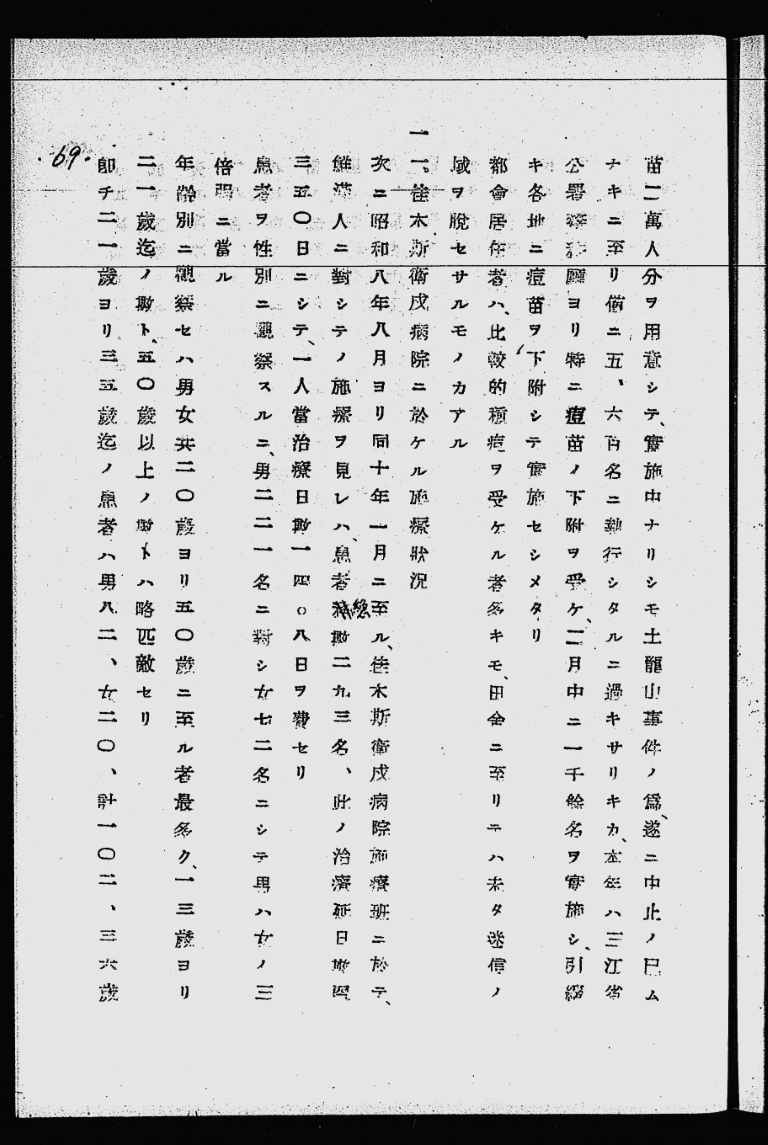 苗二萬人分ヲ用意シテ、實施中ナリシモ土龍山事件ノ爲、遂ニ中止ノ已ム
ナキニ至リ僅ニ五、六百名ニ執行シタルニ過キサリキカ、本年ハ三江省
公署ヨリ特ニ痘苗ノ下附ヲ受ケ、二月中ニ一千餘名ヲ實施シ、引續
キ各地ニ痘苗ヲ下附シテ實施セシメタリ
都會居住者ハ、比較的種痘ヲ受ケル者多キモ、田舍ニ至リテハ未タ迷信ノ
域ヲ脱セサルモノカアル
一一、佳木斯衛戍病院ニ於ケル施療狀況
次ニ昭和八年八月ヨリ同十年一月ニ至ル、佳木斯衛戍病院施療班ニ於テ、
鮮滿人ニ對シテノ施療ヲ見レハ、患者總數二九三名、此ノ治療延日數四
三五〇日ニシテ、一人當治療日數一四。八日ヲ費セリ
患者ヲ性別ニ觀察スルニ、男二二一名ニ對シ女七二名ニシテ男ハ女ノ三
倍強ニ當ル
年齡別ニ觀察セハ男女共二〇歲ヨリ五〇歲ニ至ル者最多ク、一三歲ヨリ
二一歲迄ノ數ト、五〇歲以上ノ數トハ略匹敵セリ
卽チ二一歲ヨリ三五歲迄ノ患者ハ男八二、女二〇、計一〇二、三六歲
69.